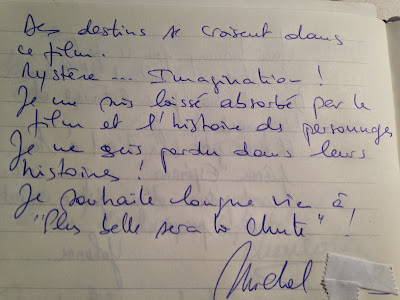 Des destins se croisent dans
ce film.
Mystère ... Imagination !
Je me suis laissé absorbé par le
film et l'histoire des personnages
Je me suis perdu dans leurs
histoires !
Je souhaite longue vie à
"Plus belle sera la chute" !
Michel